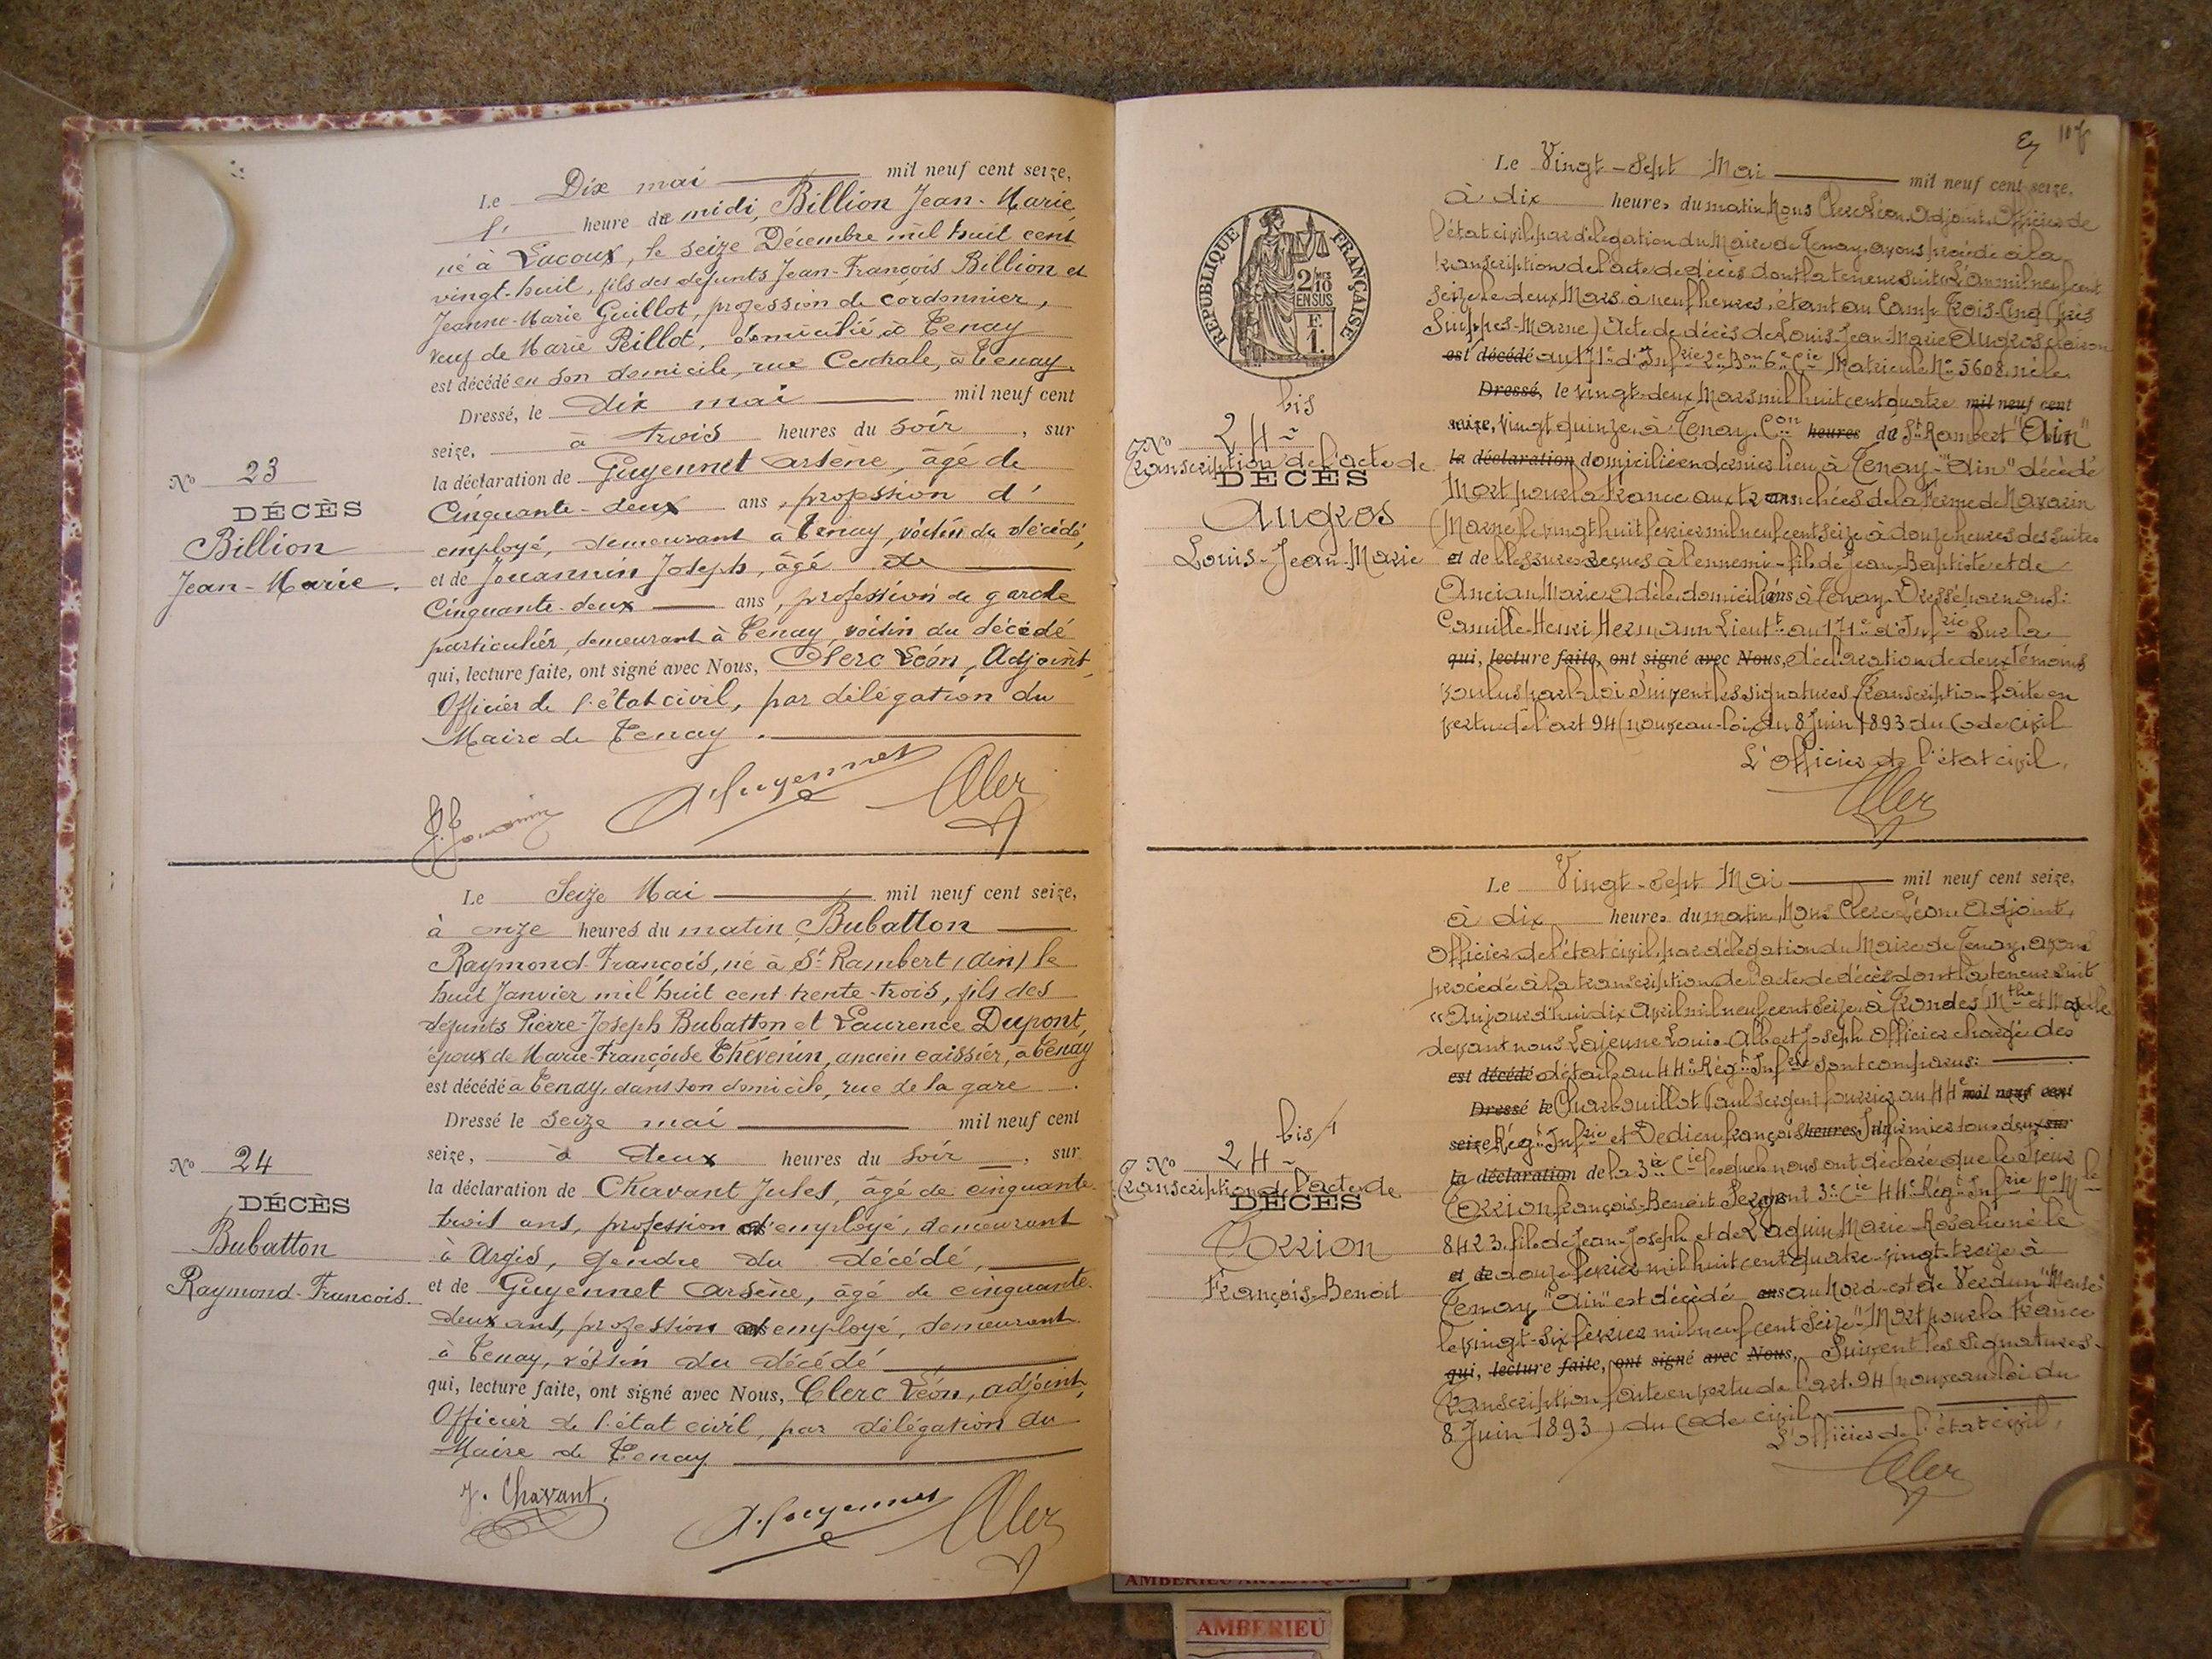 Le Dix mai mil neuf cent seize,
1' heure de midi, Billion Jean-Marie,
né à Lacoux, le seize Décembre mil huit cent
vingt-huit, fils des défunts Jean-François Billion et
Jeanne-Marie Guillot, profession de cordonnier,
veuf de Marie Peillot, domicilié à Tenay
est décédé en son domicile, rue Centrale, à Tenay.
Dressé, le dix mai mil neuf cent
seize, à trois heures du soir, sur
la déclaration de Guyennet Arsène, âgé de
Cinquante-deux ans, profession d'
employé, demeurant à Tenay, voisin du décédé,
et de Jouannin Joseph, âgé de
Cinquante-deux ans, profession de garde
particulier, demeurant à Tenay, voisin du décédé
qui, lecture faite, ont signé avec Nous, Clerc Léon, Adjoint,
Officier de l'état civil, par délégation du
Maire de Tenay.
No 23
DÉCÈS
Billion
Jean-Marie.
J. Jouannin A. Guyennet Clerc
Le Seize Mai mil neuf cent seize,
à onze heures du matin, Bubatton
Raymond-François, né à St Rambert (Ain) le
huit Janvier mil huit cent trente-trois, fils des
défunts Pierre-Joseph Bubatton et Laurence Dupont,
époux de Marie-Françoise Thévenin, ancien caissier, à Tenay
est décédé à Tenay, dans son domicile, rue de la gare.
Dressé le seize mai mil neuf cent
seize, à deux heures du soir, sur
la déclaration de Chavant Jules, âgé de cinquante-
trois ans, profession d'employé, demeurant
à Argis, gendre du décédé,
et de Guyennet Arsène, âgé de cinquante-
deux ans, profession d'employé, demeurant
à Tenay, voisin du décédé
qui, lecture faite, ont signé avec Nous, Clerc Léon, adjoint,
Officier de l'état civil, par délégation du
Maire de Tenay
No 24
DÉCÈS
Bubatton
Raymond-François.
J. Chavant. A. Guyennet Clerc
Le Vingt-Sept Mai mil neuf cent seize,
à dix heures du matin Nous Clerc Léon, Adjoint, Officier de
l'état civil par délégation du Maire de Tenay, avons procédé à la
transcription de l'acte de décès dont la teneur suit: L'an mil neuf cent
seize le deux Mars, à neuf heures, étant au Camp Trois-Cinq (près
Suippes-Marne) Acte de décès de Louis-Jean-Marie Augros clairon
est décédé au 171e d'Infrie 2e Bon 6e Cie Matricule No 5608, né le
Dressé, le vingt-deux Mars mil huit cent quatre mil neuf cent
seize, vingt quinze, à Tenay, Con heures de St Rambert "Ain"
la déclaration domicilié en dernier lieu à Tenay-"Ain" décédé
Mort pour la France aux tr ans chées de la Ferme de Navarin
(Marne) le vingt huit février mil neuf cent seize à douze heures des suites
et de blessures reçues à l'ennemi - fils de Jean-Baptiste et de
Ancian Marie Adèle, domiciliés à Tenay. Dressé par nous:
Camille-Henri Hermann Lieutt au 171e d'Infrie Sur la
qui, lecture faite, ont signé avec Nous, déclaration de deux témoins
voulus par la loi suivent les signatures Transcription faite en
vertu de l'art 94 (nouveau-loi du 8 Juin 1893 du Code civil
L'officier de l'état civil,
Clerc
107
RÉPUBLIQUE FRANÇAISE
2/10 EN SUS
F. 1.
bis
No 24
Transcription de l'acte de
DÉCÈS
Augros
Louis-Jean-Marie
Le Vingt-Sept Mai mil neuf cent seize,
à dix heures du matin, Nous Clerc Léon, Adjoint,
Officier de l'état civil, par délégation du Maire de Tenay, avons
procédé à la transcription de l'acte de décès dont la teneur suit
"Aujourd'hui dix Avril mil neuf cent seize, à Trondes, Mthe et Moselle
devant nous Lajeune Louis-Albert Joseph officier chargé des
est décédé détails au 44e Régt Infrie sont comparus:
Dressé le Charbouillot Paul sergent fourrier au 44e mil neuf cent
seize Régt Infrie et Dedieu françois heures Infirmier tous deux sur
la déclaration de la 3ie Cie lesquels nous ont déclaré que le sieur
Corrion françois-Benoit Sergent 3e Cie 44e Régt Infrie No Mle
8423, fils de Jean-Joseph et de Laguin Marie-Rosalie né le
et de douze février mil huit cent quatre-vingt-treize à
Tenay "Ain" est décédé ans au Nord-est de Verdun "Meuse"
le vingt-six février mil neuf cent seize "Mort pour la France
qui, lecture faite, ont signé avec Nous, Suivent les signatures-
Transcription faite en vertu de l'art. 94 (nouveau loi du
8 Juin 1893) du Code civil
L'officier de l'état civil,
Clerc
bis/1
No 24
Transcription de l'acte de
DÉCÈS
Corrion
François-Benoit
AMBERIEU ARTISTIQUE
AMBERIEU